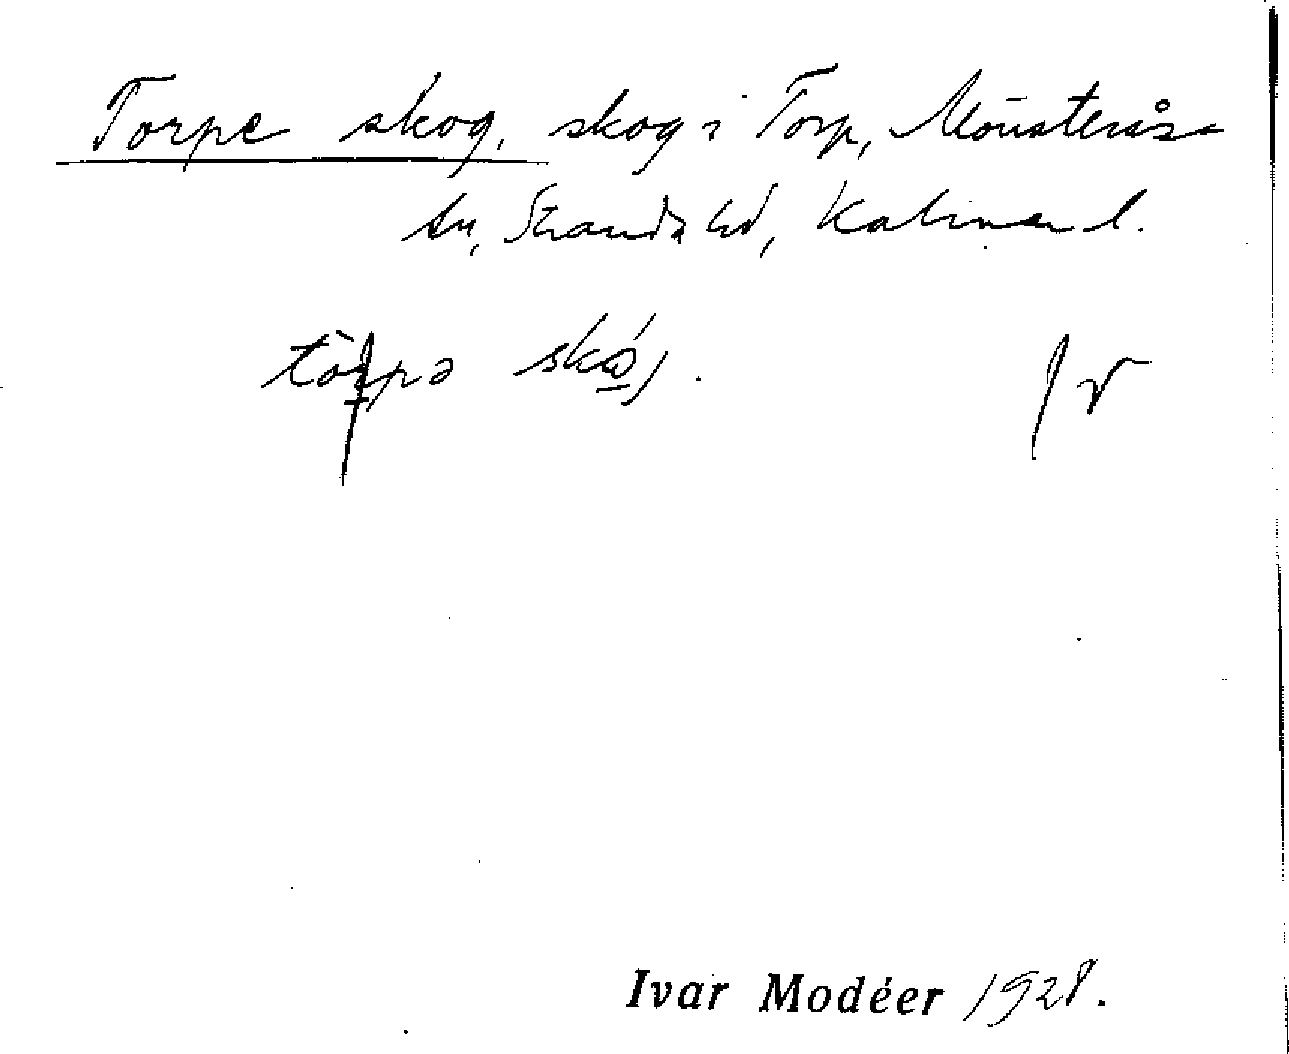 Torpe skog, skog i Torp, Mönsterås
sn, Stranda hd, Kalmar l.
Ivar Modéer 1928.